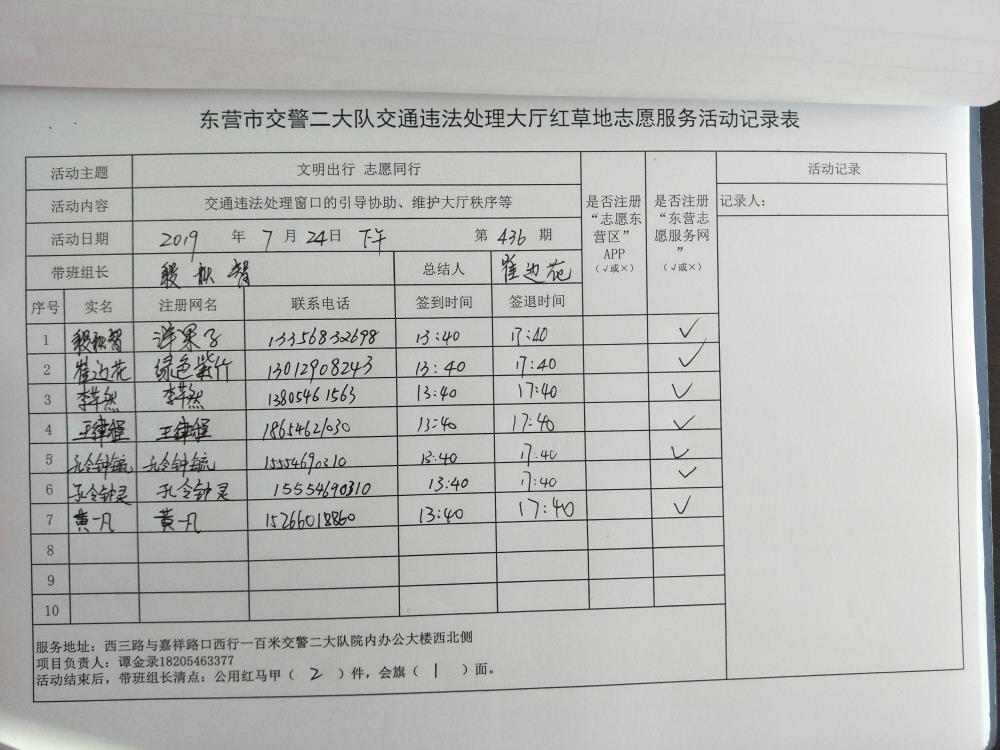 东营市交警二大队交通违法处理大厅红草地志愿服务活动记录表
活动主题 文明出行 志愿同行 是否注册“志愿东营区”APP（√或×） 是否注册“东营志愿服务网”（√或×） 活动记录
活动内容 交通违法处理窗口的引导协助、维护大厅秩序等 记录人：
活动日期 2019 年 7 月 24日 下午 第 436 期
带班组长 总结人 崔边花
序号 实名 注册网名 联系电话 签到时间 签退时间
1 洋果子 13356832698 13:40 17:40 √
2 崔边花 绿色紫竹 13012908243 13:40 17:40 √
3 李苹然 李苹然 13805461563 13:40 17:40 √
4 王律程 王律程 18654621030 13:40 17:40 √
5 孔令钟毓 孔令钟毓 15554690310 13:40 17:40 √
6 孔令钟灵 孔令钟灵 15554690310 13:40 17:40 √
7 黄一凡 黄一凡 15266018860 13:40 17:40 √
8
9
10
服务地址：西三路与嘉祥路口西行一百米交警二大队院内办公大楼西北侧
项目负责人：谭金录18205463377
活动结束后，带班组长清点：公用红马甲（ 2 ）件，会旗（ 1 ）面。